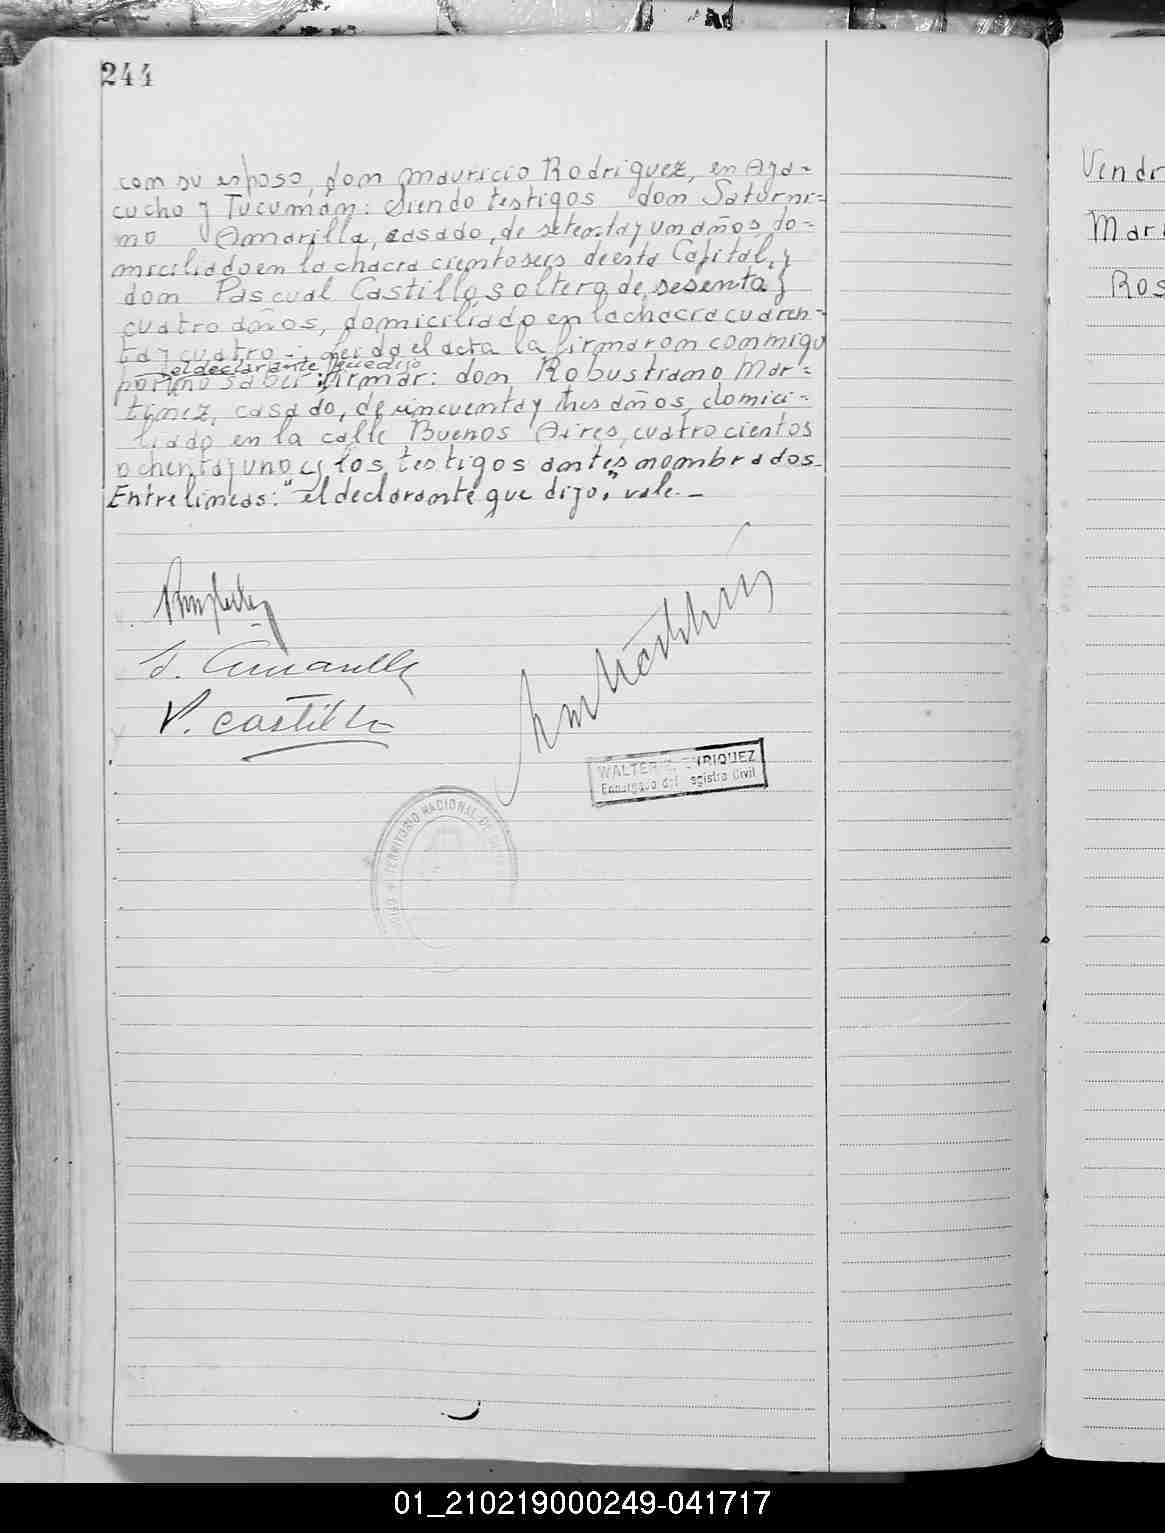 244
con su esposo, don Mauricio Rodriguez, en Aya=
cucho y Tucumán: Siendo testigos don Saturni=
no Amarilla, casado, de setenta y un años, do=
miciliado en la chacra ciento seis de esta Capital, y
don Pascual Castillo, soltero, de sesenta y
cuatro años, domiciliado en la chacra cuaren=
ta y cuatro.- Leida el acta la firmaron conmigo
el declarante que dijo
por no saber firmar: don Robustiano Mar=
tinez, casado, de cincuenta y tres años, domici=
liado en la calle Buenos Aires, cuatrocientos
ochenta y uno y los testigos antes nombrados.
Entre lineas: "el declarante que dijo," vale.-
S. Amarilla
P. Castillo
WALTER ENRIQUEZ
Encargado del Registro Civil
TERRITORIO NACIONAL DE
Vendr
Mar
Ros
01_210219000249-041717